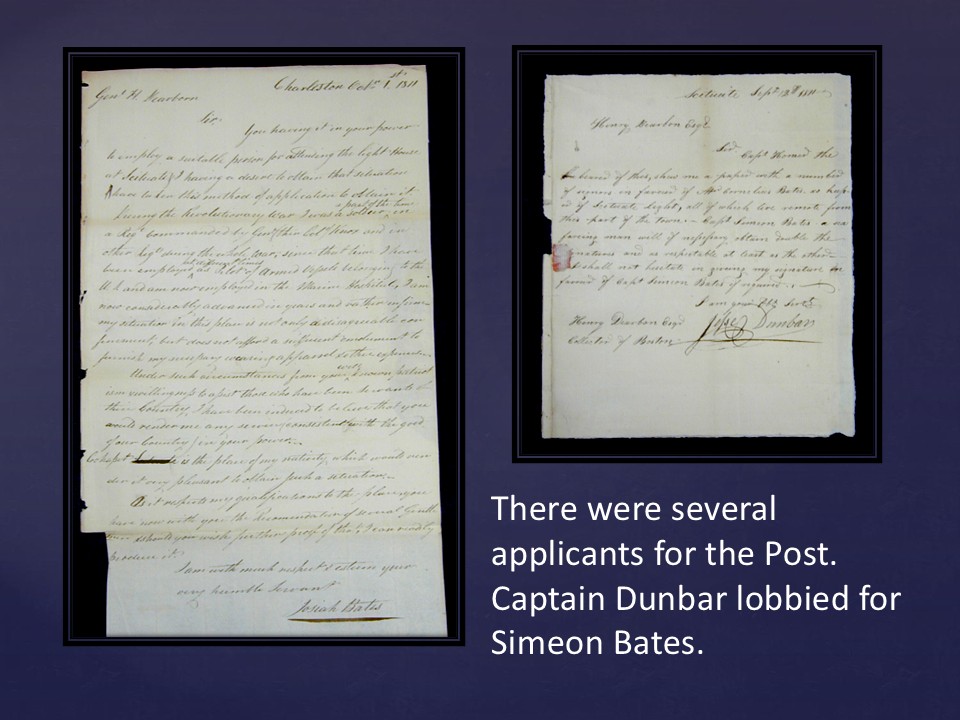 Charleston Octr 1st 1811
Genl H. Dearborn
Sir,
You having it in your power
to employ a suitable person for attending the light House
at Scituate I having a desire to obtain that situation
have taken this method of application to obtain it
During the Revolutionary War I was a part of the time a soldier, in
a Regt Commanded by Genl then Colo Knox and in
other during the whole War, since that time I have
been employed at different times as Pilot of Armed Vessels belonging to the
U.S. and am now employed in the Marine Hospital, I am
now considerably advanced in years and rather infirm
my situation in this place is not only disagreeable
but does not afford a sufficient emolument to
furnish my necessary wearing apparel & other expences.
Under such circumstances from your well known patriotism
willingness to assist those who have been servants of
their Country, I have been induced to believe that you
would render me any service consistent with the good
of our Country in your power.
Cohasset is the place of my nativity, which would ren
der it very pleasant to obtain such a situation.
As it respects my qualifications to the place you
have now with you the Recomendation of several Gentle
men & should you wish further proof of that I can readily
produce it.
I am with much respect & esteem your
very humble Servant
Josiah Bates
Scituate Sept 12th 1811
Henry Dearbon Esqr
Sir Capt Howard the
bearer of this, shew me a paper with a number
of signers in favour of Mr Cornelius Bates, as keep
er of Scituate Light, all of which live remote from
this part of the town. Capt Simeon Bates a
faring man will if nessesary obtain double the
signatures and as respectable at least as the other
I shall not hesitate in giving my signature in
favour of Capt Simeon Bates if required
I am your Obt Servt
Jesse Dunbar
Henry Dearbon Esqr
Collector of Boston
There were several
applicants for the Post.
Captain Dunbar lobbied for
Simeon Bates.